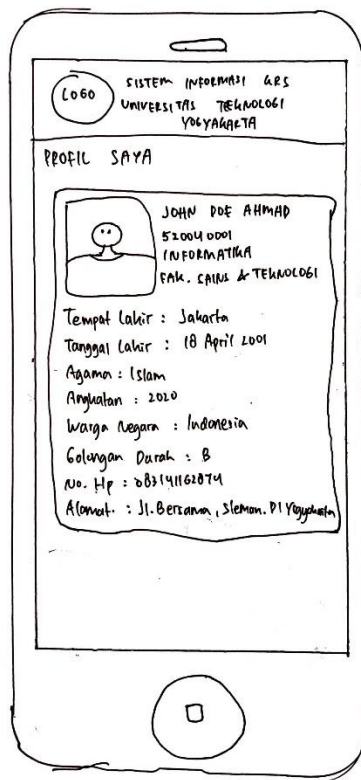 LOGO
SISTEM INFORMASI KRS
UNIVERSITAS TEKNOLOGI
YOGYAKARTA
PROFIL SAYA
JOHN DOE AHMAD
520040001
INFORMATIKA
FAK. SAINS & TEKNOLOGI
Tempat Lahir : Jakarta
Tanggal Lahir : 18 April 2001
Agama : Islam
Angkatan : 2020
Warga Negara : Indonesia
Golongan Darah : B
No. Hp : 083141162874
Alamat. : Jl. Bersama, Sleman. DI Yogyakarta